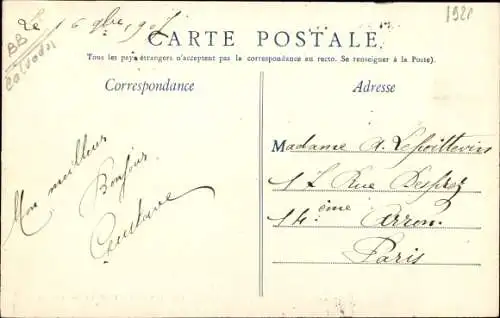 Le 16 9bre 1907
1921
BB
Calvados
CARTE POSTALE
Tous les pays étrangers n'acceptent pas la correspondance au recto. Se renseigner à la Poste).
Correspondance
Adresse
Mon meilleur
Bonjour
Gustave
Madame A. Lepoittevin
17 Rue Desprez
14 ème Arron.
Paris